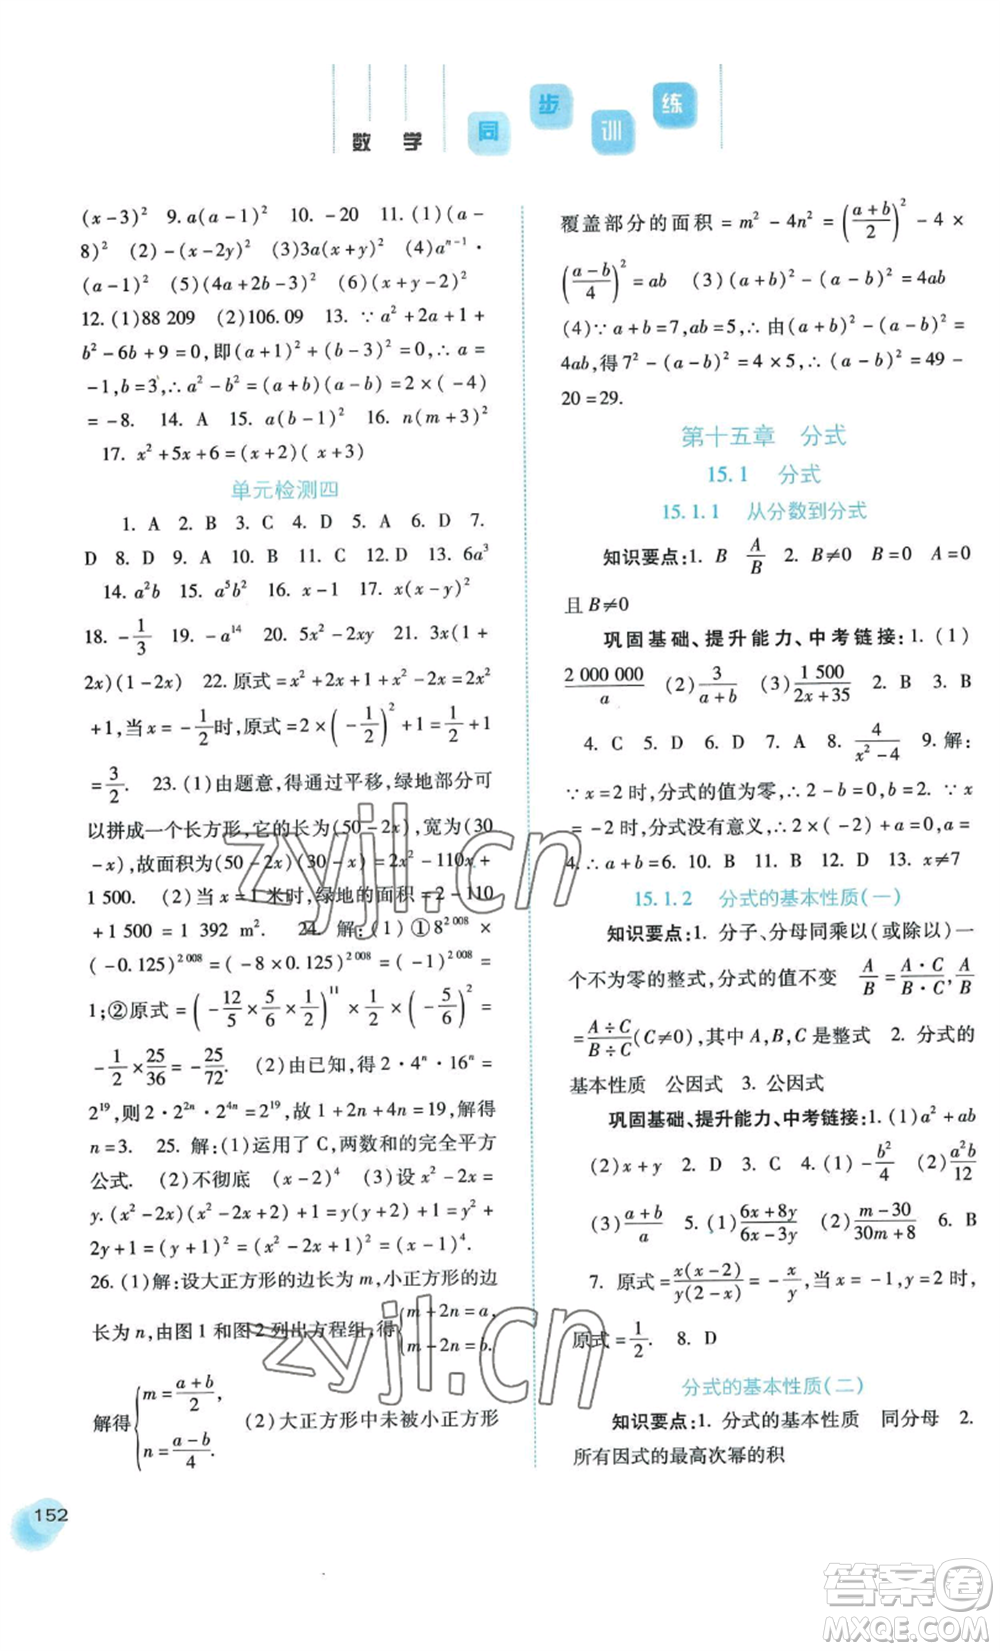 数 学 同 步 训 练
(x-3)² 9. a(a-1)² 10. -20 11. (1)(a-
8)² (2)-(x-2y)² (3)3a(x+y)² (4)aⁿ⁻¹·
(a-1)² (5)(4a+2b-3)² (6)(x+y-2)²
12. (1)88 209 (2)106.09 13. ∵a²+2a+1+
b²-6b+9=0,即(a+1)²+(b-3)²=0,∴a=
-1,b=3,∴a²-b²=(a+b)(a-b)=2×(-4)
=-8. 14. A 15. a(b-1)² 16. n(m+3)²
17. x²+5x+6=(x+2)(x+3)
单元检测四
1. A 2. B 3. C 4. D 5. A 6. D 7.
D 8. D 9. A 10. B 11. C 12. D 13. 6a³
14. a²b 15. a⁵b² 16. x-1 17. x(x-y)²
18. -1/3 19. -a¹⁴ 20. 5x²-2xy 21. 3x(1+
2x)(1-2x) 22. 原式=x²+2x+1-2x+x²
+1,当x=-1/2时,原式=2×(-1/2)²+1=1/2+1
=3/2. 23. (1)由题意,得通过平移,绿地部分可
以拼成一个长方形,它的长为(50-2x),宽为(30
-x),故面积为(50-2x)(30-x)=2x²-110x+
1 500. (2)当x=1米时,绿地的面积=2-110
+1 500=1 392 m². 24. 解:(1)①8²⁰⁰⁸×
(-0.125)²⁰⁰⁸=(-8×0.125)²⁰⁰⁸=(-1)²⁰⁰⁸=
1;②原式=(-12/5×5/6×1/2)¹¹×1/2×(-5/6)²=
-1/2×25/36=-25/72. (2)由已知,得2·4ⁿ·16ⁿ=
2¹⁹,则2·2²ⁿ·2⁴ⁿ=2¹⁹,故1+2n+4n=19,解得
n=3. 25. 解:(1)运用了C,两数和的完全平方
公式. (2)不彻底 (x-2)⁴ (3)设x²-2x=
y.(x²-2x)(x²-2x+2)+1=y(y+2)+1=y²+
2y+1=(y+1)²=(x²-2x+1)²=(x-1)⁴.
26. (1)解:设大正方形的边长为m,小正方形的边
长为n,由图1和图2列出方程组,得{m+2n=a, m-2n=b.
解得{m=(a+b)/2, n=(a-b)/4. (2)大正方形中未被小正方形
152
覆盖部分的面积=m²-4n²=((a+b)/2)²-4×
((a-b)/4)²=ab (3)(a+b)²-(a-b)²=4ab
(4)∵a+b=7,ab=5,∴由(a+b)²-(a-b)²=
4ab,得7²-(a-b)²=4×5,∴(a-b)²=49-
20=29.
第十五章 分式
15.1 分式
15.1.1 从分数到分式
知识要点:1. B A/B 2. B≠0 B=0 A=0
且B≠0
巩固基础、提升能力、中考链接:1. (1)
2 000 000/a (2)3/(a+b) (3)1 500/(2x+35) 2. B 3. B
4. C 5. D 6. D 7. A 8. 4/(x²-4) 9. 解:
∵x=2时,分式的值为零,∴2-b=0,b=2. ∵x
=-2时,分式没有意义,∴2×(-2)+a=0,a=
4.∴a+b=6. 10. B 11. B 12. A 13. x≠7
15.1.2 分式的基本性质(一)
知识要点:1. 分子、分母同乘以(或除以)一
个不为零的整式,分式的值不变 A/B=(A·C)/(B·C),A/B
=(A÷C)/(B÷C)(C≠0),其中A,B,C是整式 2. 分式的
基本性质 公因式 3. 公因式
巩固基础、提升能力、中考链接:1. (1)a²+ab
(2)x+y 2. D 3. C 4. (1)-b²/4 (2)a²b/12
(3)(a+b)/a 5. (1)(6x+8y)/(6x-3y) (2)(m-30)/(30m+8) 6. B
7. 原式=x(x-2)/y(2-x)=-x/y,当x=-1,y=2时,
原式=1/2. 8. D
分式的基本性质(二)
知识要点:1. 分式的基本性质 同分母 2.
所有因式的最高次幂的积
zyjl.cn
zyjl.cn
答案圈
MXQE.COM